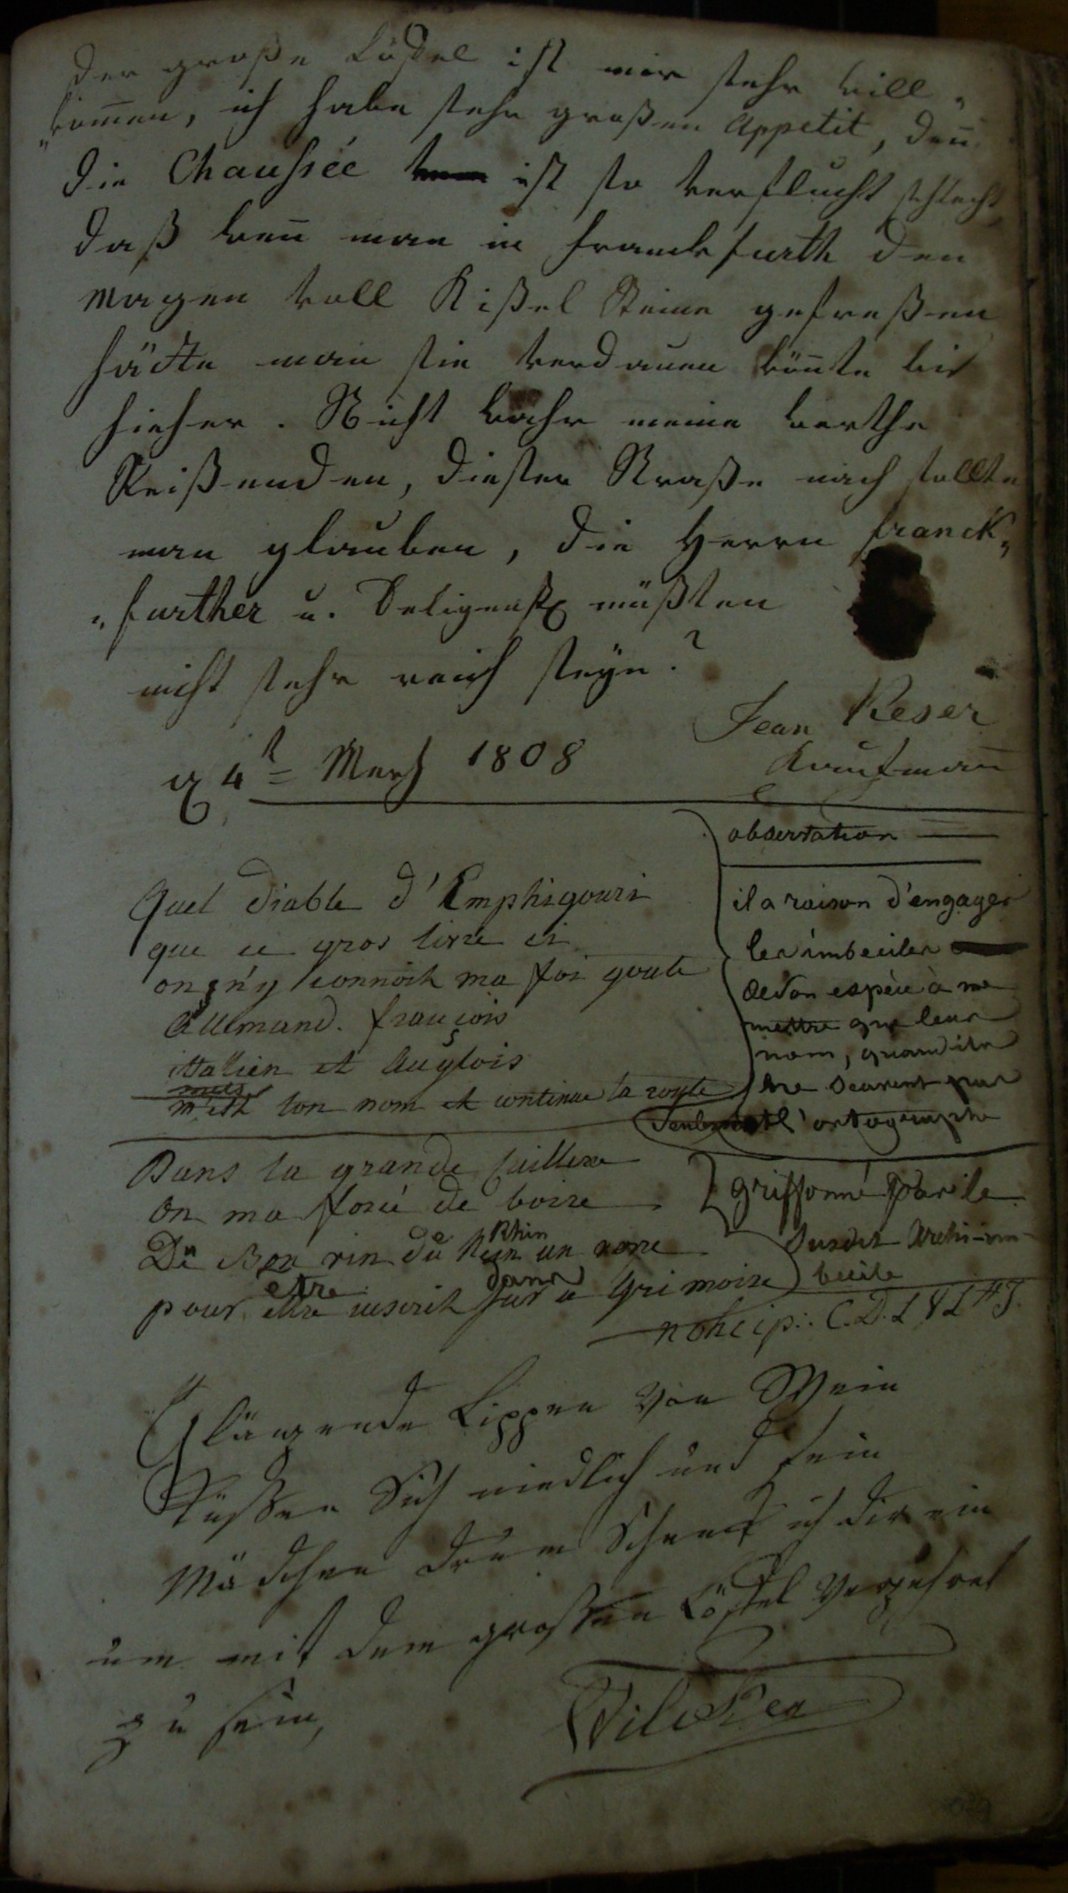 Der große Löffel ist mir sehr will„
„kom̅en, ich habe sehr großen Appetit, den̅
die Chaussée ist so verflucht schlecht
daß wen̅ man in Franckfurth den
Magen voll Kißel Steine gefreßen
hätte man sie verdauen kön̅te bis
hieher. Nicht wahr meine werthe
Reißenden, dieser Straße nach sollte
man glauben, die Herrn Franck„
„further u. Seligenst müßten
nicht sehr reich seyn?
Jean Reser
Kaufman̅
4t Merz 1808
Quel diable d'Emphigouri
que ce gros livre ci
on n'y connoit ma foi goute
Allemand. françois
ittalien et Anglois
mets
ton nom et continue ta route
observation
il a raison d'engager
les imbeciles
de son espèce à ne
mettre que leur
nom, quand ils
ne scavent pas
seulement l'ortographe
Dans la grande cuillere
on ma forcé de boire
Du Bon vin du Rhin un verre
Rhin
pour être inscrit sur ce Grimoire
etre dans
griffonné par le
susdit Archi-im-
becile
C.D.L
Glänzende Lippen von Wein
Küssen Sich niedlich und fein
Mädchen drum Schenk ich dir ein
um mit dem grossen Löffel
zu sein,